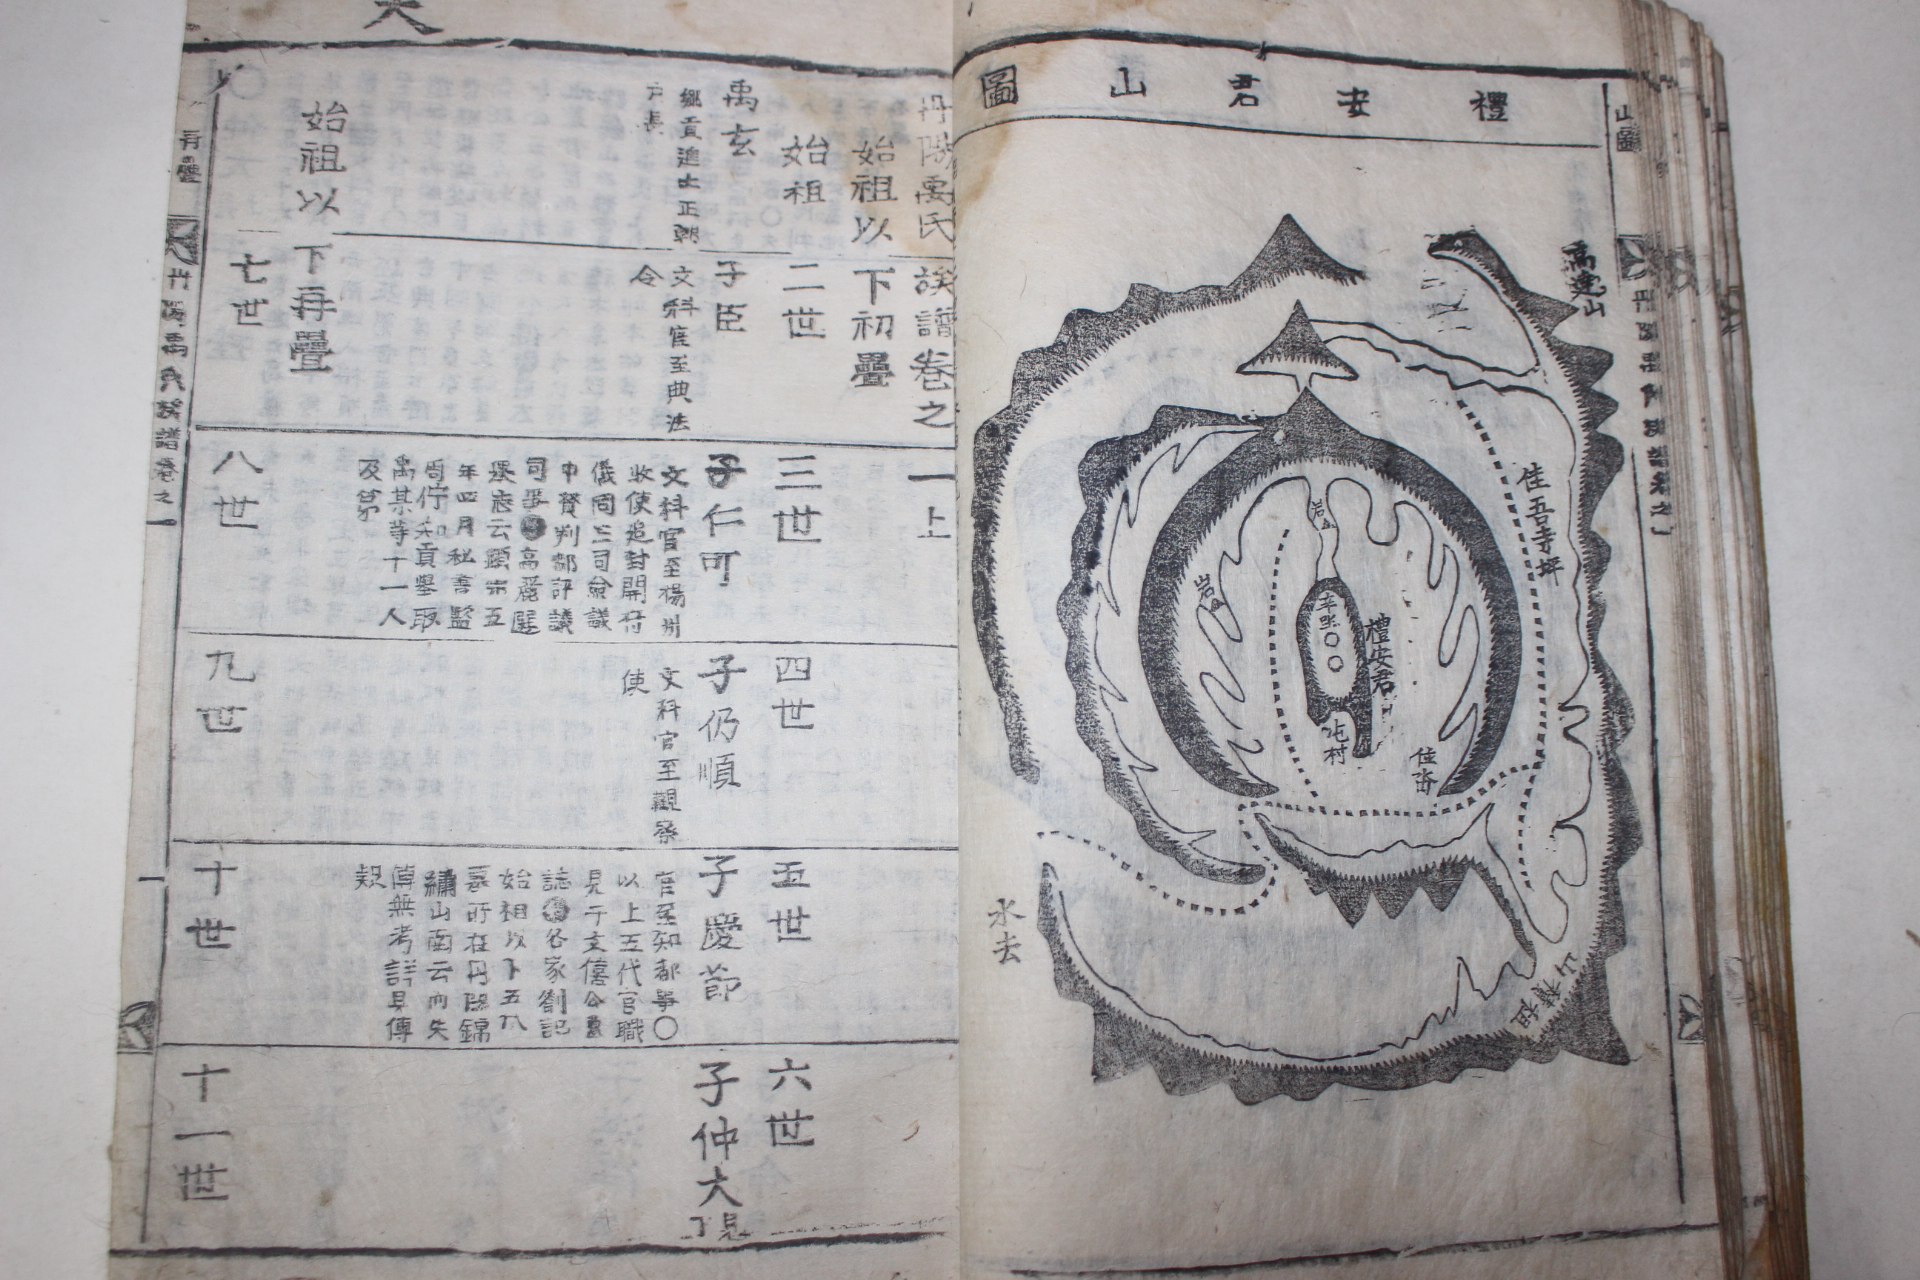 禮安君山圖
山圖
禹逸山
佳吾寺坪
岩
岩
辛坐
禮安君
屯村
水去
丹陽禹氏族譜卷之一上
始祖以下初疊
始祖
二世
三世
四世
五世
六世
禹玄
鄕貢進士正朝
戶長
子臣
文科官至典法
令
子仁可
文科官至楊州
牧使追封開府
儀同三司僉議
中贊判都評議
司事 高麗選
五
年四月
禹某等十一人
及第
子仍順
文科官至觀察
使
子慶節
官至知都事〇
以上五代官職
見于文僖公
誌 各家劄記
始祖以下五代
墓所在丹陽錦
繡山南云而失
傳無考詳具傳
疑
子仲大
見
丁
始祖以下再疊
七世
八世
九世
十世
十一世
再疊
丹陽禹氏族譜卷之一
一